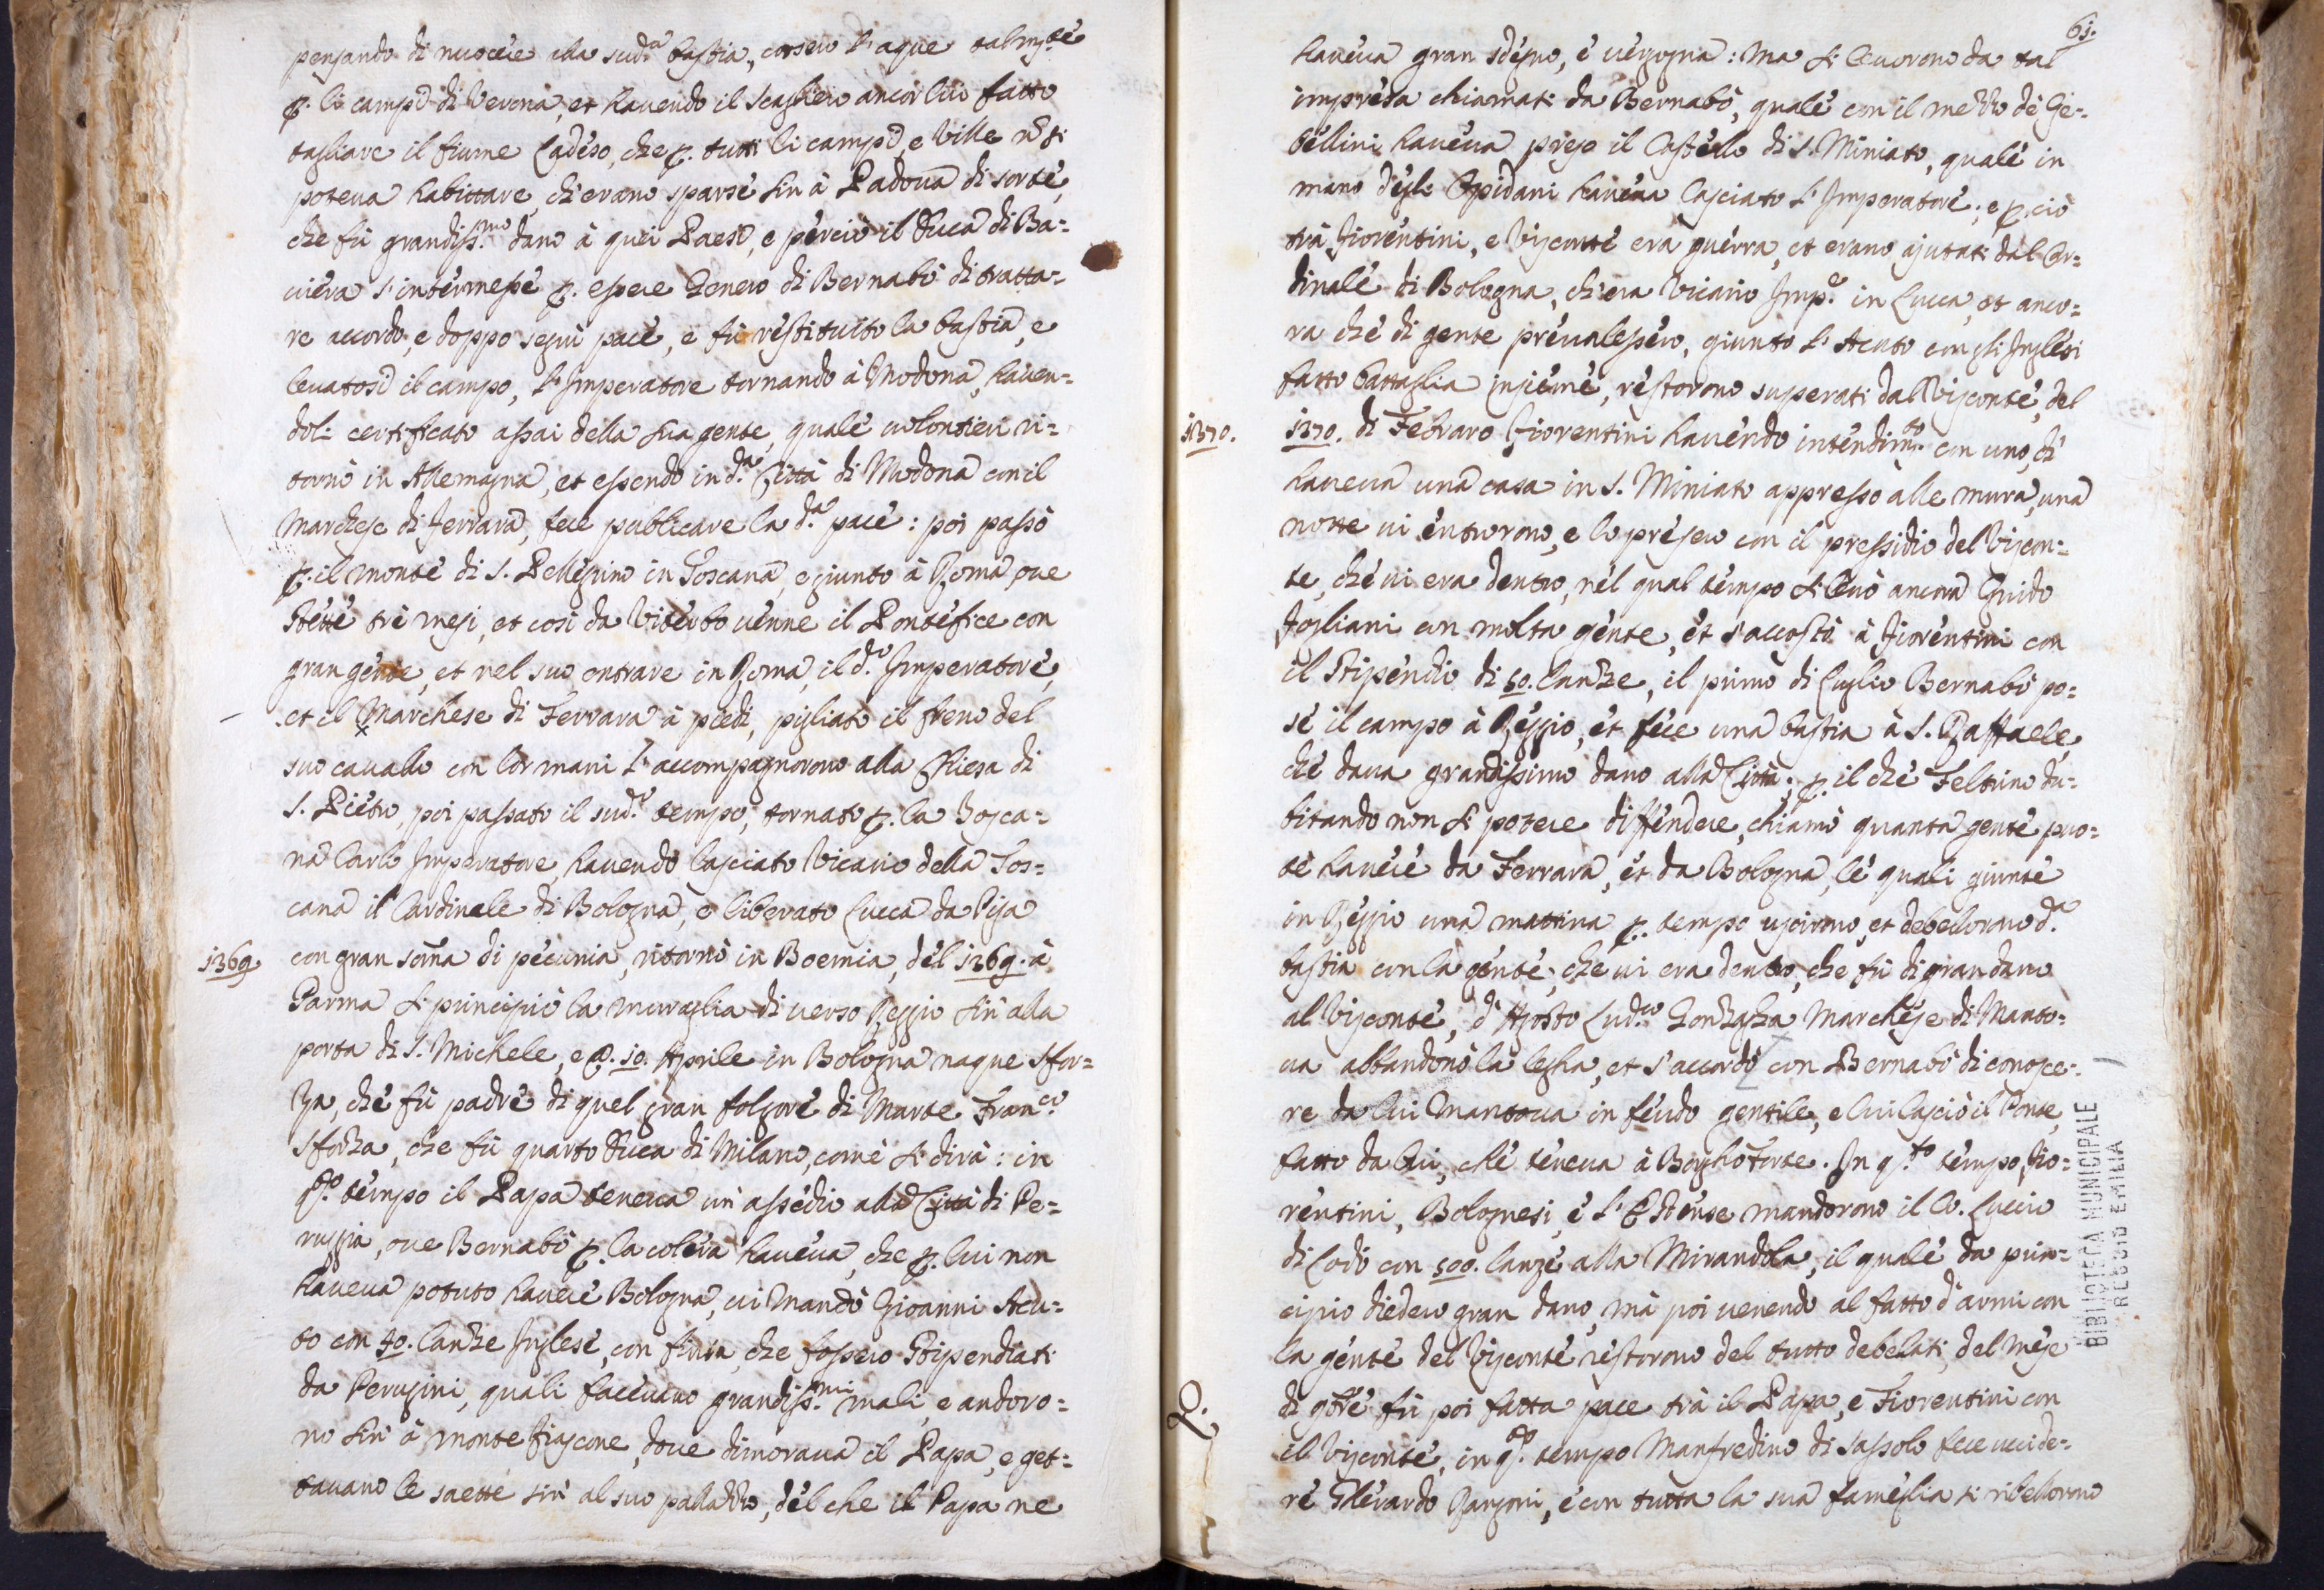 pensando di nuocere alla sud.ª bastia, corsero l'aque talm.te
p. li campi di Verona, et hauendo il Scagliero ancor lui fatto
tagliare il fiume Ladeso, che p. tutti li campi, e Ville nõ si
poteua habittare, ch'erano sparse sin à Padoua di sorte,
che fù grandiss.mo dano à quei Paesi, e perciò il Duca di Ba=
uiera s'intermesse p. essere Genero di Bernabò di tratta=
re accordo, e doppo seguì pace, e fù restituito la bastia, e
leuatosi il campo, l'Imperatore tornando à Modona, hauen=
doli certificato assai della sua gente, quale uolontieri ri=
tornò in Allemagna, et essendo in d.ª Città di Modona con il
Marchese di Ferrara, fece publicare la d.ª pace: poi passò
p. il monte di S. Pellegrino in Toscana, e giunto à Roma oue
stette trè mesi, et così da Viterbo uenne il Pontefice con
gran gente, et nel suo entrare in Roma, il d.º Imperatore,
et il Marchese di Ferrara à piedi, pigliato il freno del
suo cauallo con lor mani l'accompagnorono alla Chiesa di
S. Pietro, poi passato il sud.º tempo, tornato p. la Tosca=
na Carlo Imperatore, hauendo lasciato Vicario della Tos=
cana il Cardinale di Bologna, e liberato Lucca da Pisa
1369. con gran soma di pecunia, ritornò in Boemia, del 1369. à
Parma si principiò la muraglia di uerso Reggio sin alla
porta di S. Michele, e p. 10. Aprile in Bologna naque Sfor=
za, che fù padre di quel gran folgore di Marte Fran.co
Sforza, che fù quarto Duca di Milano, come si dirà: in
q.to tempo il Papa teneua un' assedio alla Città di Pe=
ruggia, oue Bernabò p. la colera haueua, che p. lui non
haueua potuto hauere Bologna, ui mandò Gioanni Acu=
to con 40. lanze Inglese, con finta, che fossero Stipendiati
da Perugini, quali faceuano grandiss.mi mali, e andoro=
no sin à monte fiascone, doue dimoraua il Papa, e get=
tauano le saette sin al suo palazzo, del che il Papa ne
61.
haueua gran sdegno, e uergogna: Ma si leuorono da tal
impresa chiamati da Bernabò, quale con il mezzo de Ge=
bellini haueua preso il Castello di S. Miniato, quale in
mano degli Opidani haueua lasciato l'Imperatore; e p. ciò
trà Fiorentini, e Visconte era guerra, et erano ajutati dal Car=
dinale di Bologna, ch'era Vicario Imp.e in Lucca, et anco=
ra che di gente preualessero, giunto l'Acuto con gli Inglesi
fatto battaglia insieme, restorono superati dal Visconte, del
1370. 1370. di Febraro Fiorentini hauendo intendim.to con uno, ch'
haueua una casa in S. Miniato appresso alle mura, una
notte ui entrorono, e lo presero con il pressidio del Viscon=
te, che ui era dentro, nel qual tempo si leuò ancora Guido
Fogliani con molta gente, et s'accostò à Fiorentini con
il stipendio di 50. lanze, il primo di Luglio Bernabò po=
se il campo à Reggio, et fece una bastia à S. Raffaele,
che daua grandissimo dano alla Città; p. il che Feltrino du=
bitando non si potere diffendere, chiamò quanta gente puo=
te hauere da Ferrara, et da Bologna, le quali giunte
in Reggio una mattina p. tempo uscirono, et debellorono d.ª
bastia con la gente, che ui era dentro, che fù di gran dano
al Visconte, d'Agosto Lud.co Gonzagha Marchese di Manto=
ua abbandonò la legha, et s'accordò con Bernabò di conosce=
re da lui Mantoua in feudo gentile, e lui lasciò il Ponte,
fatto da lui, che teneua à Borghoforte. In q.to tempo, Fio=
rentini, Bolognesi, e l'Estense mandorono il Co. Luccio
di Lodo con 500. lanze alla Mirandola, il quale da prin=
cipio diedero gran dano, mà poi uenendo al fatto d'armi con
la gente del Visconte restorono del tutto debelati, del mese
di 9bre fù poi fatta pace trà il Papa, e Fiorentini con
il Visconte, in q.to tempo Manfredino di Sassolo fece uccide=
re Gherardo Rangoni, e con tutta la sua fameglia si ribellorono
BIBLIOTECA MUNICIPALE
REGGIO EMILIA